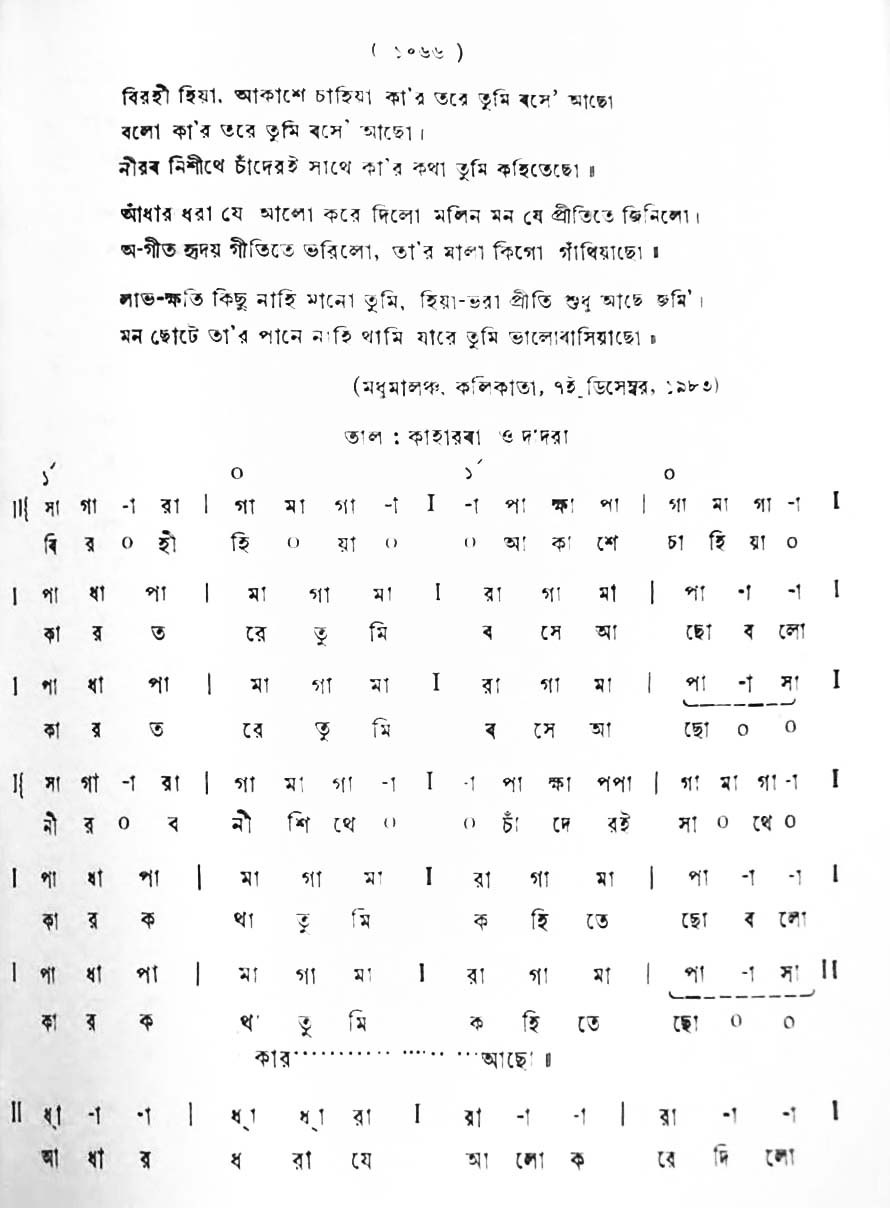 ( ১০৬৬ )
বিরহী হিয়া, আকাশে চাহিয়া কা'র তরে তুমি বসে' আছো
বলো কা'র তরে তুমি বসে' আছো ।
নীরব নিশীথে চাঁদেরই সাথে কা'র কথা তুমি কহিতেছো ॥
আঁধার ধরা যে আলো করে দিলো মলিন মন যে প্রীতিতে জিনিলো ।
অ-গীত হৃদয় গীতিতে ভরিলো, তা'র মালা কিগো গাঁথিয়াছো ॥
লাভ-ক্ষতি কিছু নাহি মানো তুমি, হিয়া-ভরা প্রীতি শুধু আছে জমি' ।
মন ছোটে তা'র পানে নাহি থামি যারে তুমি ভালোবাসিয়াছো ॥
(মধুমালঞ্চ, কলিকাতা, ৭ই ডিসেম্বর, ১৯৮৩)
তাল : কাহারবা ও দাদরা
১´ ০ ১´ ০
II{ সা গা -া রা | গা মা গা -া I -া পা ক্ষা পা | গা মা গা -া I
বি র ০ হী হি ০ য়া ০ ০ আ কা শে চা হি য়া ০
I পা ধা পা | মা গা মা I রা গা মা | পা -া -া I
কা র ত রে তু মি ব সে আ ছো ব লো
I পা ধা পা | মা গা মা I রা গা মা | পা -া সা I
কা র ত রে তু মি ব সে আ ছো ০ ০
I{ সা গা -া রা | গা মা গা -া I -া পা ক্ষা পপা | গা মা গা -া I
নী র ০ ব নী শি থে ০ ০ চাঁ দে রই সা ০ থে ০
I পা ধা পা | মা গা মা I রা গা মা | পা -া -া I
কা র ক থা তু মি ক হি তে ছো ব লো
I পা ধা পা | মা গা মা I রা গা মা | পা -া সা II
কা র ক থা তু মি ক হি তে ছো ০ ০
কার·················আছো ॥
II ধ্া -া -া | ধ্া ধ্া রা I রা -া -া | রা -া -া I
আ ধা র ধ রা যে আ লো ক রে দি লো